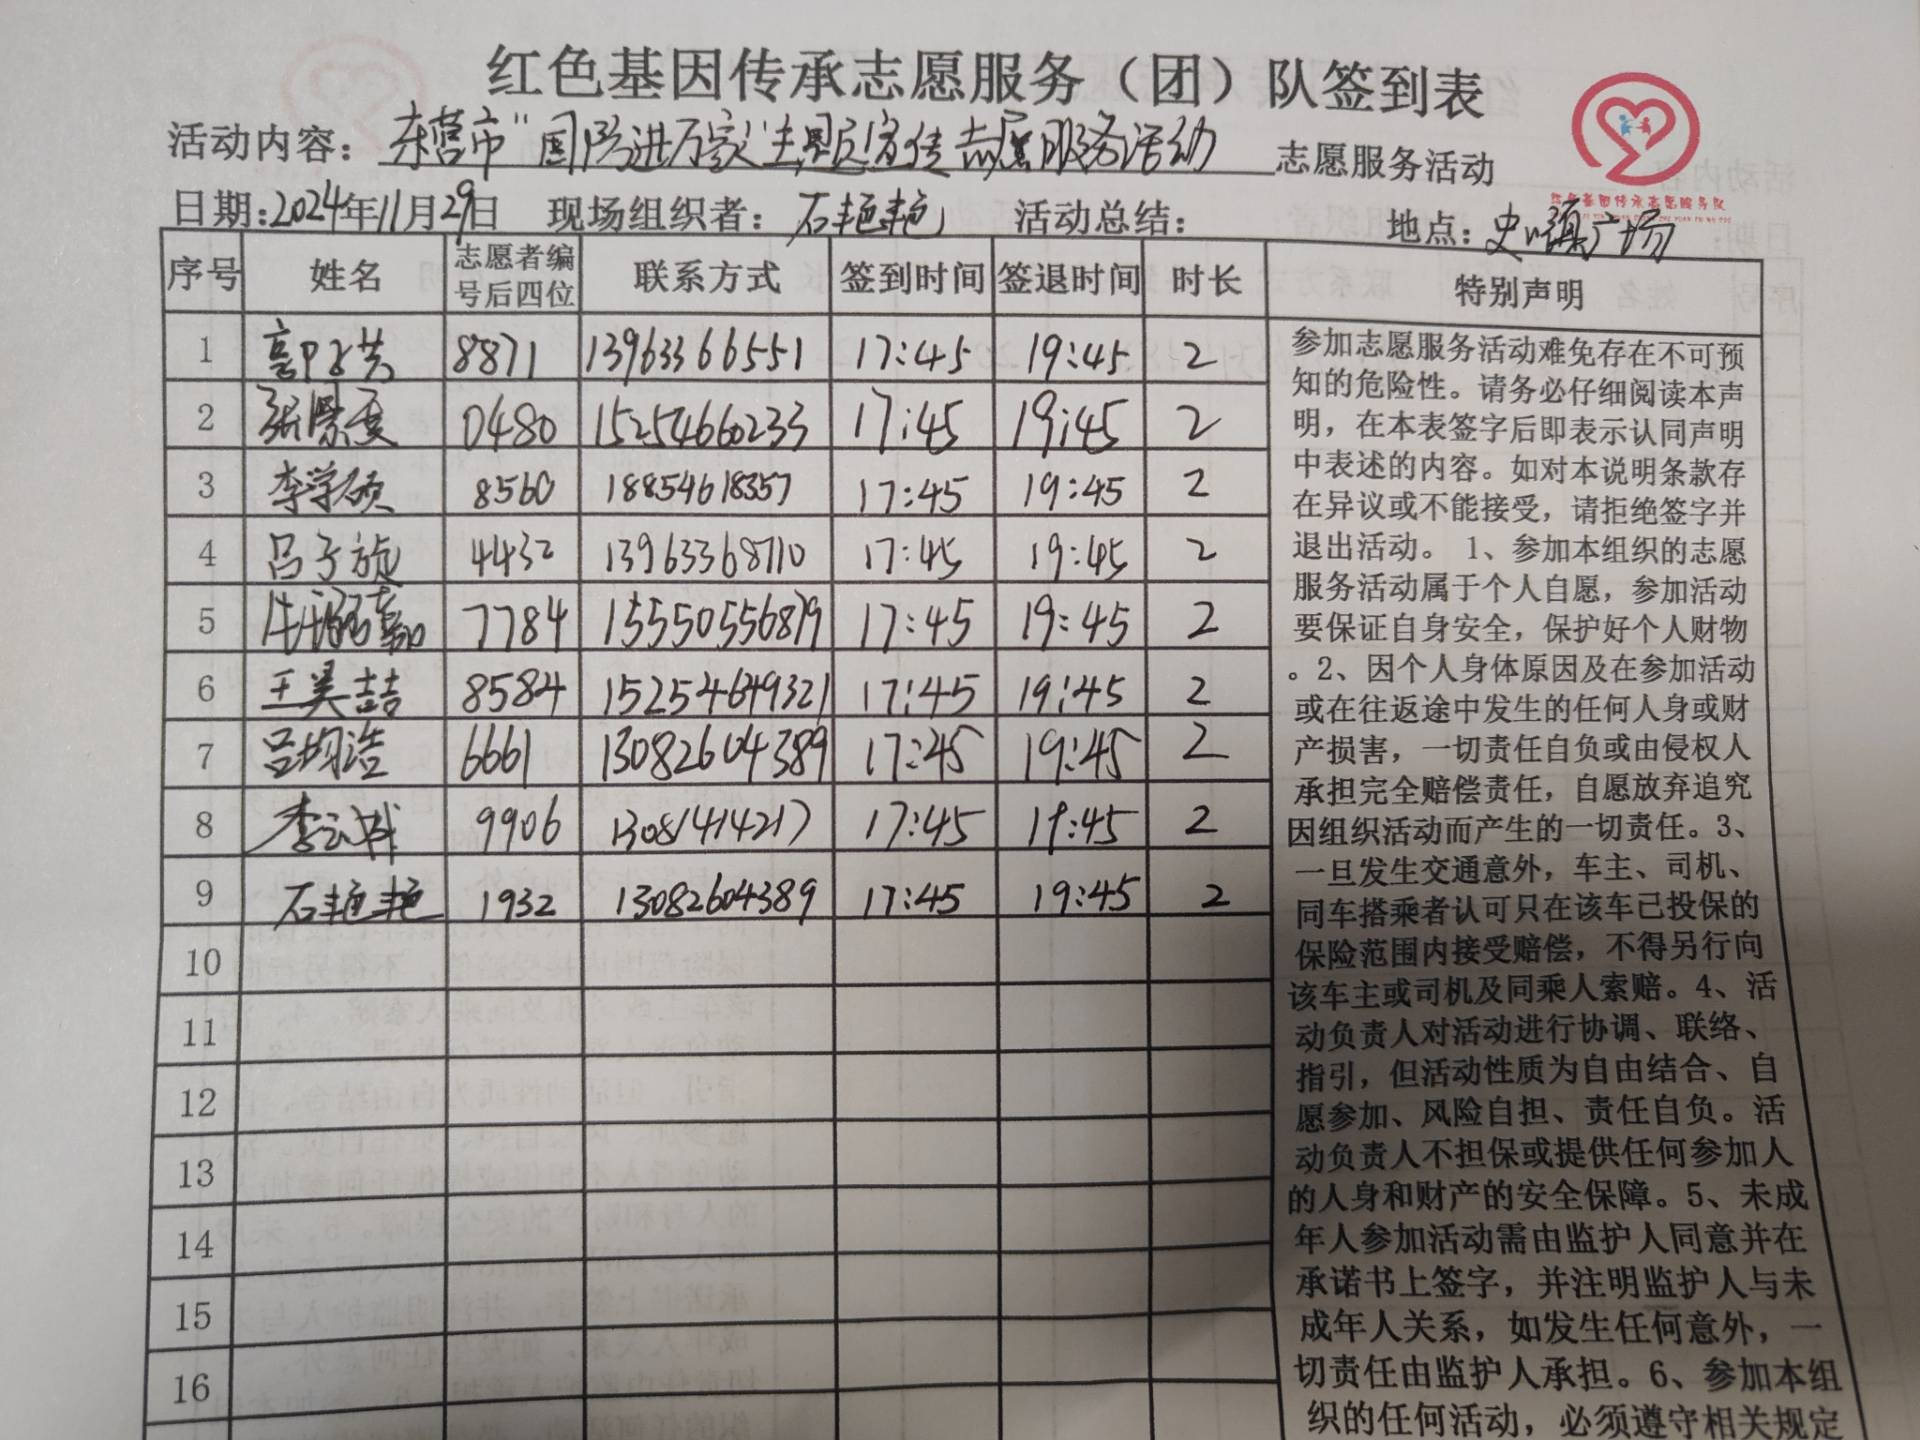 红色基因传承志愿服务（团）队签到表
活动内容：东营市"国防进万家"主题宣传志愿服务活动 志愿服务活动
红色基因传承志愿服务队
日期：2024年11月29日 现场组织者：石艳艳 活动总结： 地点：史口镇广场
序号 姓名 志愿者编号后四位 联系方式 签到时间 签退时间 时长 特别声明
1 8871 13963366551 17:45 19:45 2
2 张景雯 0480 15254660233 17:45 19:45 2
3 李学硕 8560 18854618357 17:45 19:45 2
4 吕子旋 4432 13963368710 17:45 19:45 2
5 7784 15550556879 17:45 19:45 2
6 王昊喆 8584 15254649321 17:45 19:45 2
7 吕均浩 6661 13082604389 17:45 19:45 2
8 李云斌 9906 13081414217 17:45 19:45 2
9 石艳艳 1932 13082604389 17:45 19:45 2
10
11
12
13
14
15
16
参加志愿服务活动难免存在不可预
知的危险性。请务必仔细阅读本声
明，在本表签字后即表示认同声明
中表述的内容。如对本说明条款存
在异议或不能接受，请拒绝签字并
退出活动。 1、参加本组织的志愿
服务活动属于个人自愿，参加活动
要保证自身安全，保护好个人财物
。2、因个人身体原因及在参加活动
或在往返途中发生的任何人身或财
产损害，一切责任自负或由侵权人
承担完全赔偿责任，自愿放弃追究
因组织活动而产生的一切责任。3、
一旦发生交通意外，车主、司机、
同车搭乘者认可只在该车已投保的
保险范围内接受赔偿，不得另行向
该车主或司机及同乘人索赔。4、活
动负责人对活动进行协调、联络、
指引，但活动性质为自由结合、自
愿参加、风险自担、责任自负。活
动负责人不担保或提供任何参加人
的人身和财产的安全保障。5、未成
年人参加活动需由监护人同意并在
承诺书上签字，并注明监护人与未
成年人关系，如发生任何意外，一
切责任由监护人承担。6、参加本组
织的任何活动，必须遵守相关规定